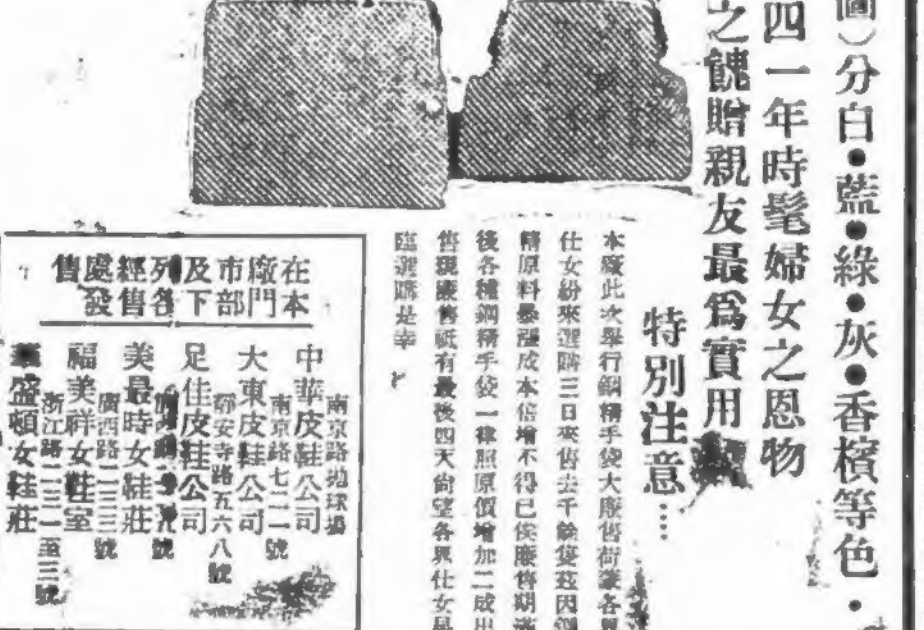 圖）分白•藍•綠•灰•香檳等色•
四一年時髦婦女之恩物
之餽贈親友最爲實用
特別注意⋯⋯
本廠此次舉行鋼精手袋大廉售荷蒙各界
仕女紛來選購三日來售去千餘隻茲因鋼
精原料暴漲成本倍增不得已俟廉售期滿
後各種鋼精手袋一律照原價增加二成出
售現廉售祗有最後四天尙望各界仕女早
臨選購是幸
在本廠門市部及下列各經售處發售
南京路拋球場
中華皮鞋公司
南京路七二一號
大東皮鞋公司
靜安寺路五六八號
足佳皮鞋公司
號
美最時女鞋莊
廣西路二三三號
福美祥女鞋室
浙江路二三一至三號
華盛頓女鞋莊